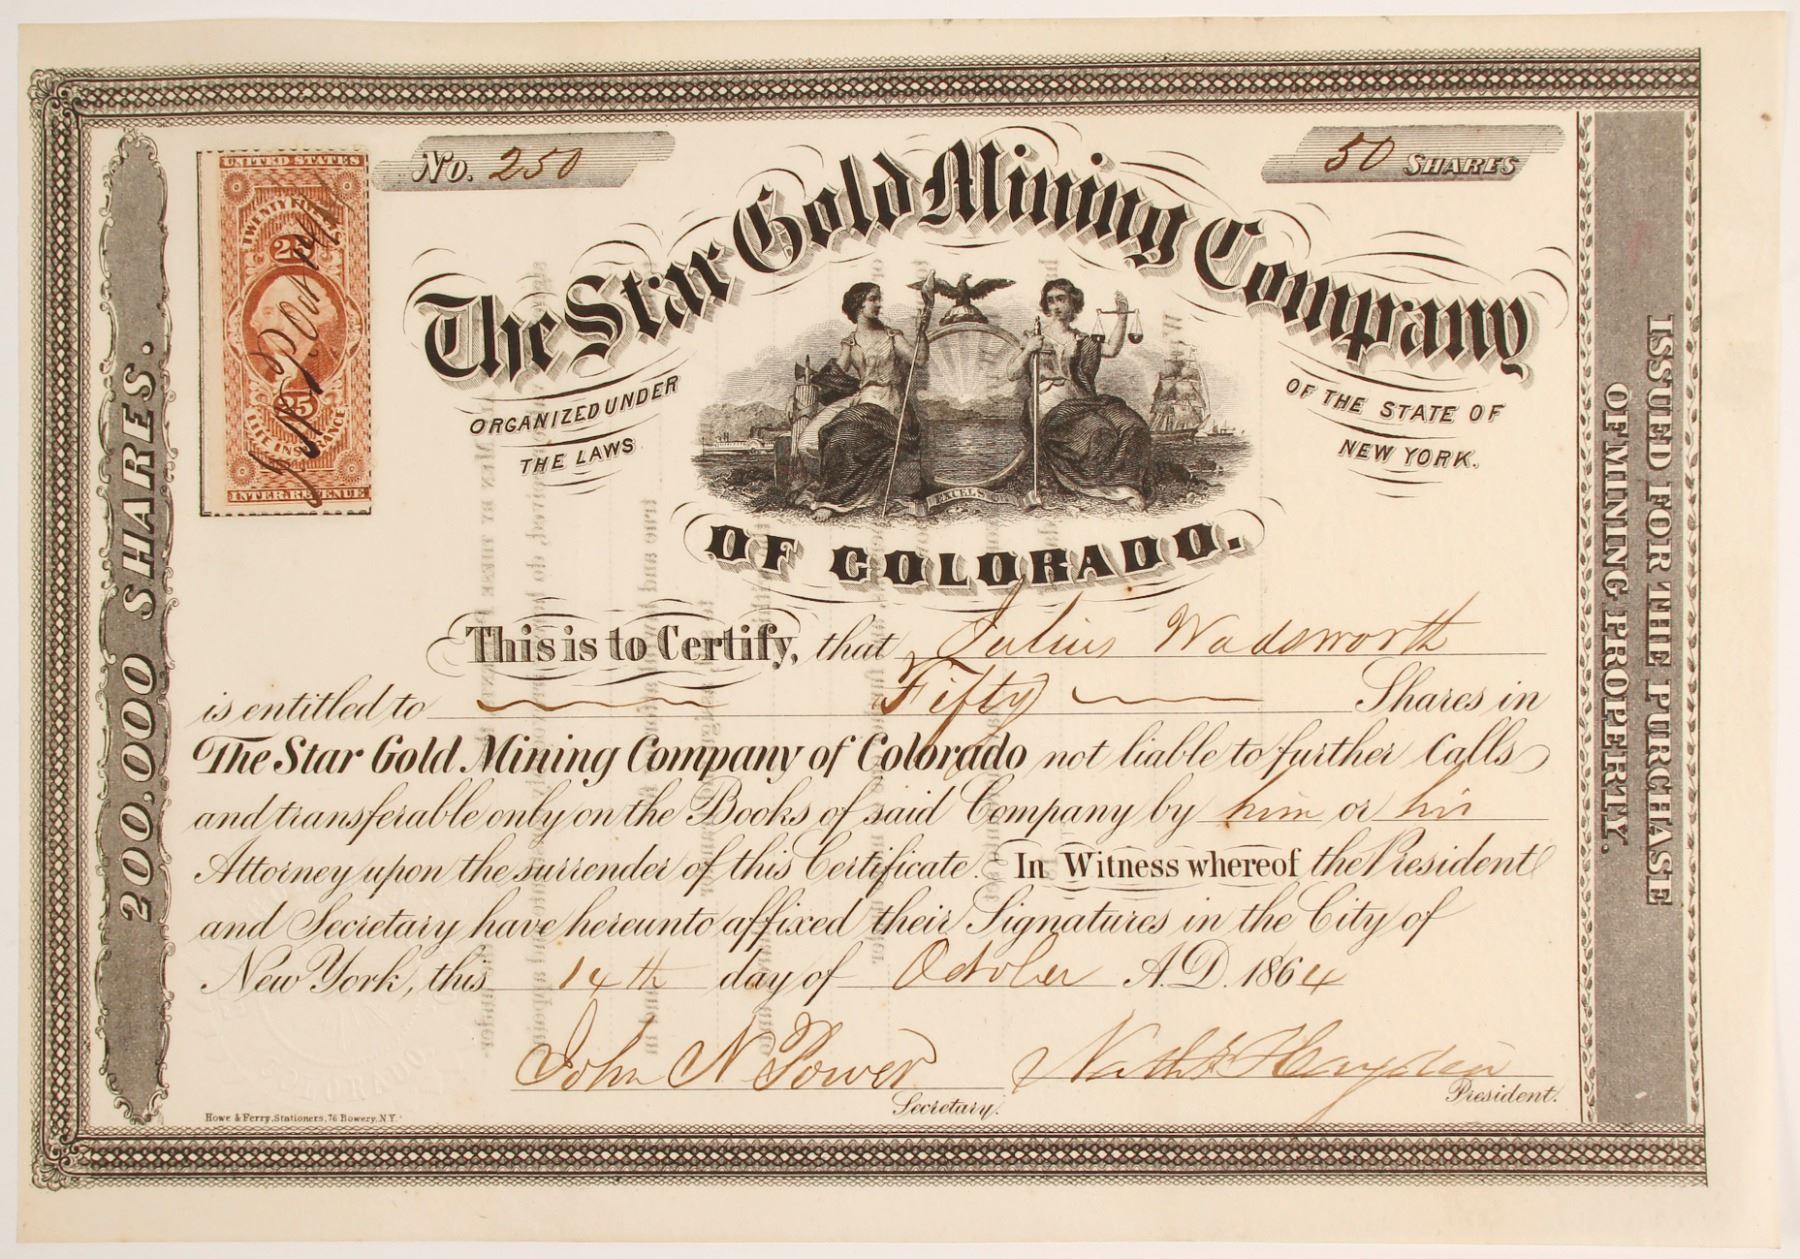 UNITED STATES
25
LIFE INSURANCE
INTER. REVENUE
No. 250
50 SHARES
The Star Gold Mining Company
ORGANIZED UNDER
THE LAWS
OF THE STATE OF
NEW YORK.
EXCELSIOR
OF COLORADO.
200.000 SHARES.
ISSUED FOR THE PURCHASE
OF MINING PROPERTY.
This is to Certify, that Julius Wadsworth
is entitled to Fifty Shares in
The Star Gold Mining Company of Colorado not liable to further Calls
and transferable only on the Books of said Company by him or his
Attorney upon the surrender of this Certificate. In Witness whereof the President
and Secretary have hereunto affixed their Signatures in the City of
New York, this 14th day of October A.D. 1864
John N Power
Secretary.
Nathl Hayden
President.
COLORADO.
Howe & Ferry, Stationers, 76 Bowery, N.Y.